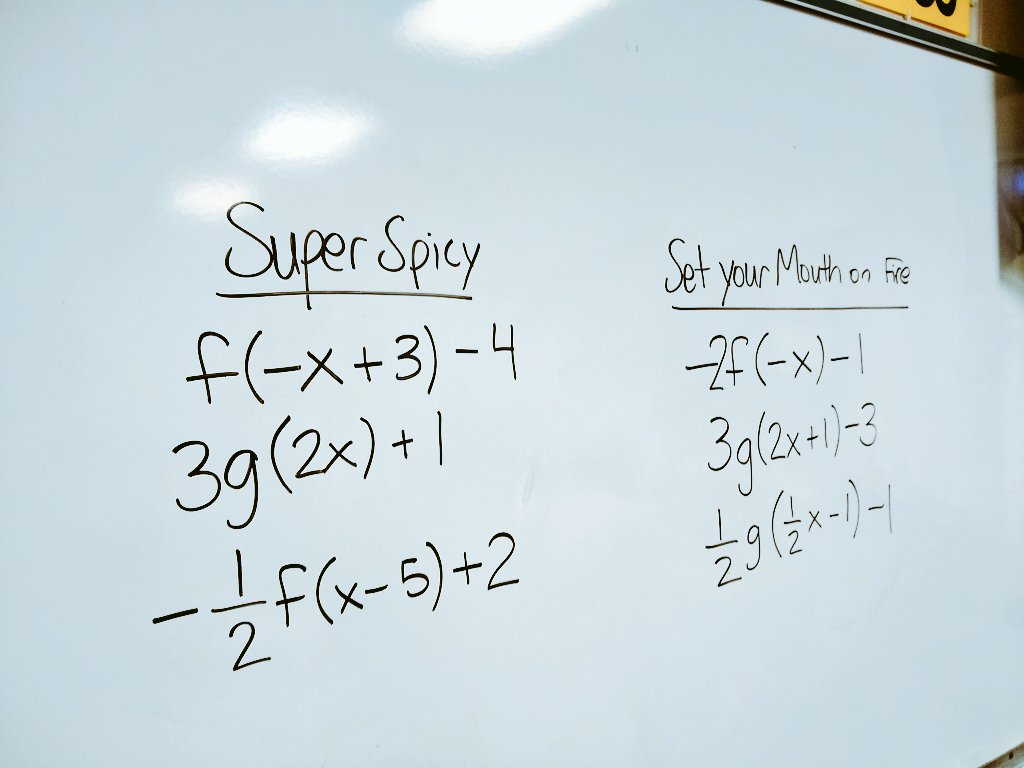 Super Spicy
f(-x+3)-4
3g(2x)+1
-1/2 f(x-5)+2
Set your Mouth on Fire
-2f(-x)-1
3g(2x+1)-3
1/2 g(1/2 x-1)-1